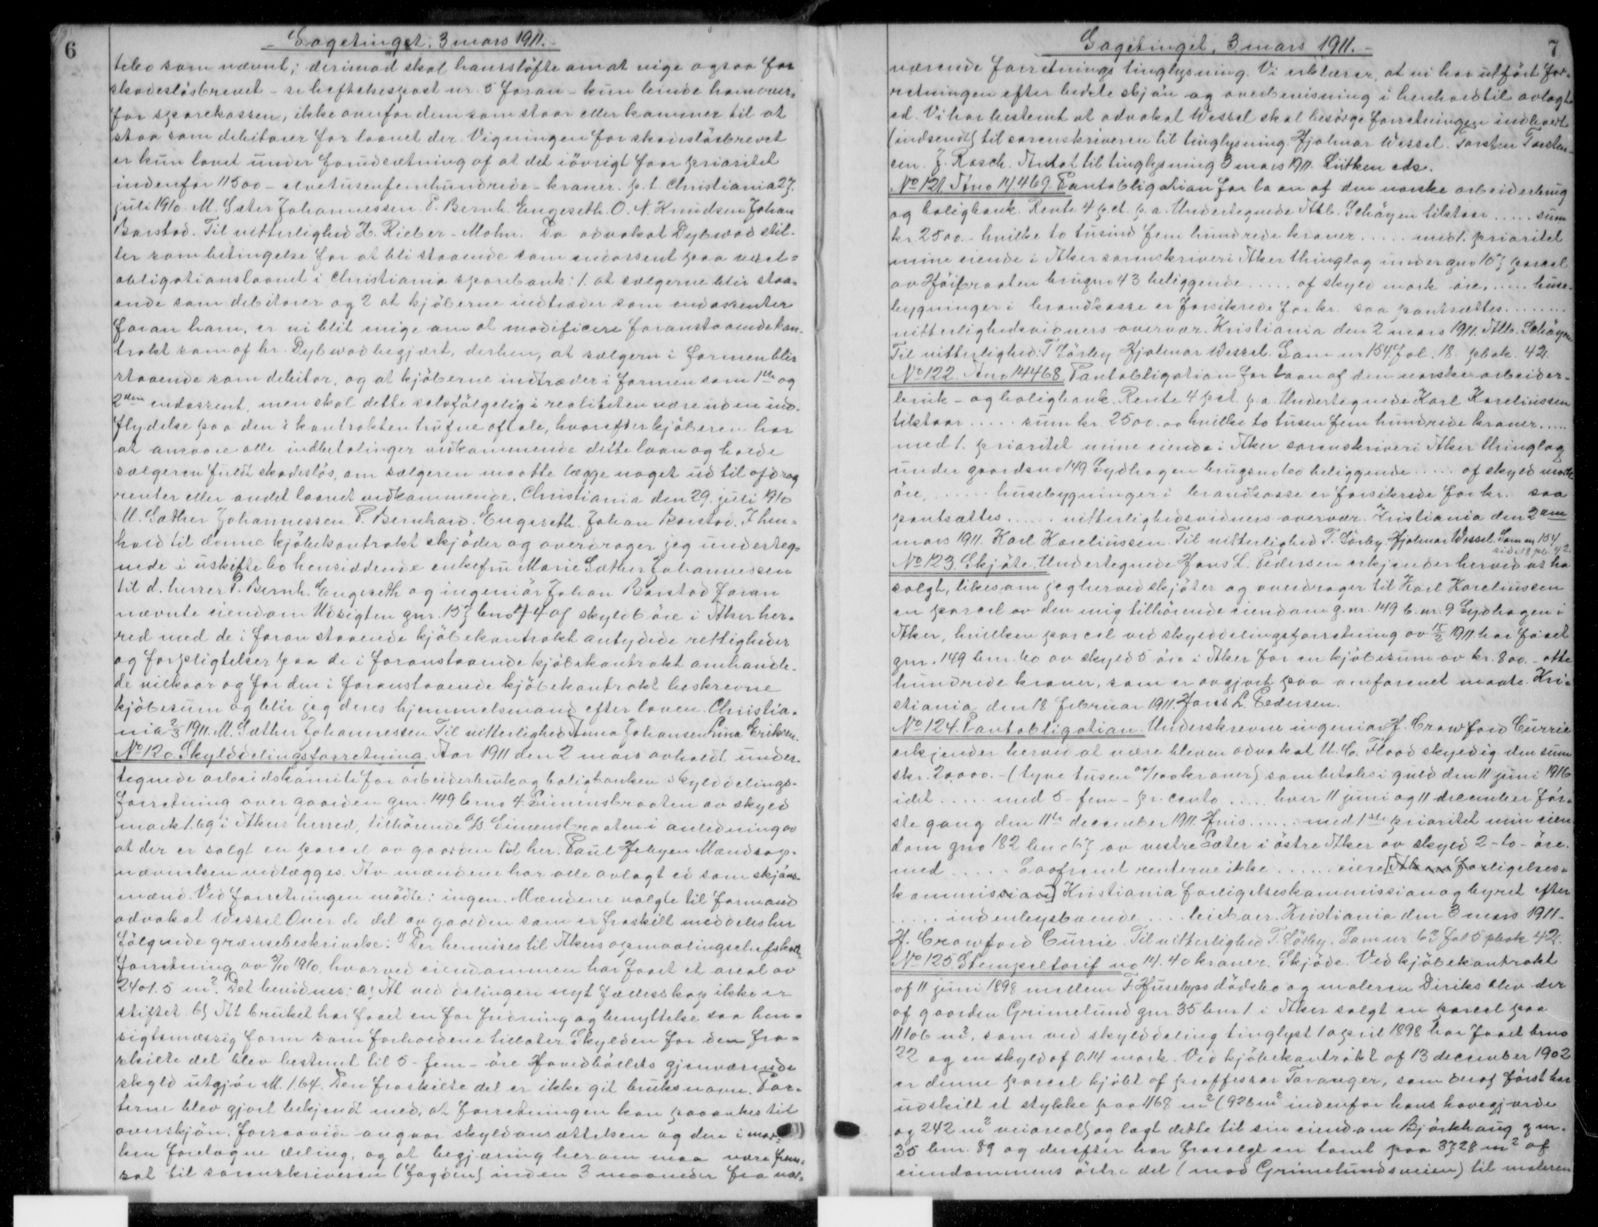 6
Sagetinget, 3 mars 1911.
tebo som nævnt; derimod skal hansløfte om at vige ogsaa for
skadesløsbrevet – se heftelsespost nr. 5 foran – kun binde ham over-
for sparekassen, ikke ovenfor dem som staar eller kommer til at
staa som debitorer for laanet der. Vigningen for skadesløsbrevet
er kun lovet under forudsætning af at det iøvrigt faar prioritet
indenfor 11500 – elvetusenfemhundrede – kroner. p.t. Christiania 27.
juli 1910. M. Sæter Johannessen. P. Bernh. Engeseth. O. N. Knudsen Johan
Barstad. Til vitterlighed H. Rieber-Mohn. Da advokat Dybwad stil-
ler som betingelse for at bli staaende som endossent paa vexel-
obligationslaanet i Christiania sparebank: 1. at sælgerne blir staa-
ende som debitorer og 2 at kjøberne indtræder som endossenter
foran ham, er vi blit enige om at modificere foranstaaende kon-
trakt som af hr. Dybwad begjært, derhen, at sælgern i formen blir
staaende som debitor, og at kjøberne indtræder i formen som 1ste og
2den endossent, men skal dette selvfølgelig i realiteten være uden ind-
flydelse paa den i kontrakten trufne aftale, hvorefter kjøberen har
at ansvare alle indbetalinger vedkommende dette laan og holde
sælgeren fuldt skadesløs, om sælgeren maatte lægge noget ud til afdrag
renter eller andet laanet vedkommende. Christiania den 29. juli 1910
M. Sæther Johannessen P. Bernhard. Engeseth. Johan Barstad. I hen-
hold til denne kjøbekontrakt skjøder og overdrager jeg underteg-
nede i uskiftebo hensiddende enkefru Marie Sæther Johannessen
til d. herrer P. Bernh. Engeseth og ingeniør Johan Barstad foran
nævnte eiendom Udsigten gnr. bno 44 af skyld øre i Aker her-
red med de i foran staaende kjøbekontrakt antydede rettigheder
og forpligtelser paa de i foranstaaende kjøbekontrakt omhandle-
de vilkaar og for den i foranstaaende kjøbekontrakt beskrevne
kjøbesum og blir jeg deres hjemmelsmand efter loven. Christia-
nia 2/3 1911. M. Sæther Johannessen. Til vitterlighed Anna Johansen Lina Eriksen.
No 120. Skylddelingsforretning. Aar 1911 den 2 mars avholdt under-
tegnede arbeidskomité for arbeiderbruk og boligbanken skylddelings-
forretning over gaarden gnr. 149 bno 4 Eimensbraaten av skyld
mark 1.69 i Akers herred, tilhørende A/S Eimensbraaten i anledning av
at der er solgt en parcel av gaarden til hr. Paul Mændsop-
nævnelsen vedlægges. Av mændene har alle avlagt ed som skjøns-
mænd. Ved forretningen mødte: ingen. Mændene valgte til formand
advokat Wessel. Over de del av gaarden som er fraskilt meddeles her
følgende grænsebeskrivelse: 1) Der henvises til Akers opmaalingschefs
forretning av /10 1910, hvorved eiendommen har faaet et areal av
2401.5 m². Det bevidnes: a) At ved delingen nyt fællesskap ikke er
stiftet. b) At bruket har faaet en for fredning og benyttelse saa hen-
sigtsmæssig form som forholdene tillater. Skylden for den fra-
skilte del blev bestemt til 5 – fem – øre. Hovedbølets gjenværende
skyld utgjør M. 1.64. Den fraskilte del er ikke git bruksnavn. Par-
terne blev gjort bekjendt med, at forretningen kan paaankes til
overskjøn, forsaavidt angaar skyldansættelsen og den i mar-
ken foretagne deling, og at begjæring herom maa være frem-
sat til sorenskriveren (fogden) inden 3 maaneder fra nær-
7
Sagetinget, 3 mars 1911.
værende forretnings tinglysning. Vi erklærer, at vi har utført for-
retningen efter bedste skjøn og overbevisning i henhold til avlagt
ed. Vi har bestemt at advokat Wessel skal besørge forretningen indlevert
(indsendt) til sorenskriveren til tinglysning. Hjalmar Wessel. Torsten Torsten-
sen. J. Rasch. Antat til tinglysning 3 mars 1911. Lütken eds.
No 121. Ano 14469. Pantobligation for laan af den norske arbeiderbrug
og boligbank. Rente 4 pct. p.a. Undertegnede Atb. Schøyen tilstaar ..... sum
kr. 2500 – hvilke to tusind fem hundrede kroner ..... med 1. prioritet
mine eiende i Aker sorenskriveri Aker thinglag under gno 107 parcel
av Høibraaten brugno 43 beliggende ..... af skyld mark øre, ..... huse-
bygninger i brandkasse er forsikrede for kr. saa pantsættes .....
vitterlighedsvidners overvær. Kristiania den 2 mars 1911. Atb. Schøyen
Til vitterlighed: T. Sørby Hjalmar Wessel. Sam nr 154 fol. 18. pbok. 42.
No 122. Ano 14468. Pantobligation for laan af den norske arbeider-
bruk- og boligbank. Rente 4 pct. p.a. Undertegnede Karl Kareliussen
tilstaar ..... sum kr. 2500. – hvilke to tusen fem hundrede kroner .....
med 1. prioritet mine eiende i Aker sorenskriveri Aker thinglag
under gaardsno 149 Sydhagen brugsno 60 beliggende ..... af skyld mark
øre, ..... husebygninger i brandkasse er forsikrede for kr. saa
pantsættes ..... vitterlighedsvidners overvær. Kristiania den 2den
mars 1911. Karl Kareliussen. Til vitterlighed T. Sørby Hjalmar Wessel. Sam nr 154
side 18 pb. 42.
No 123. Skjøte. Undertegnede Hans L. Pedersen erkjender herved at ha
solgt, likesom jeg herved skjøter og overdrager til Karl Kareliussen
en parcel av den mig tilhørende eiendom g.nr. 149 b.nr. 9 Sydhagen i
Aker, hvilken parcel ved skylddelingsforretning av 15/2 1911 har faaet
gnr. 149 bnr. 60 av skyld 5 øre i Aker for en kjøbesum av kr. 800. – otte
hundrede kroner, som er avgjort paa omforenet maate. Kri-
stiania, den 18 februar 1911. Hans L. Pedersen.
No 124. Pantobligation. Underskrevne ingeniør H. Crawford Currie
erkjender herved at være bleven advokat U. C. Flood skyldig den sum
stor 20,000. – (tyve tusen 00/100 kroner) som betales i guld den 11 juni 1916
idet ..... med 5 – fem – pr. cento ..... hver 11 juni og 11 december før-
ste gang den 11te december 1911. Hvis ..... med 1ste prioritet min eien-
dom gno 182 bno 67 av vestre Sæter i østre Aker av skyld 2 – to – øre.
med ..... Saafremt renterne ikke ..... eiere [Aker forligelses-
kommission] Kristiania forligelseskommission og byret efter
..... indenbysboende .... leieboer. Kristiania den 3 mars 1911.
H. Crawford Currie. Til vitterlighed T. Sørby. Sam nr 67 fol 5 pbok 42.
No 125. Stempeltarif no 14. 40 kroner. Skjøde. Ved kjøbekontrakt
af 11 juni 1898 mellem F. Husebyes dødsbo og maleren Diriks blev der
af gaarden Grimelund gnr 35 bnr 1 i Aker solgt en parcel paa
11106 m², som ved skylddeling tinglyst 1 april 1898 har faaet bruno
22 og en skyld af 0.14 mark. Ved kjøbekontrakt af 13 december 1902
er denne parcel kjøbt af proffessor Taranger, som deraf først har
udskilt et stykke paa 468 m² (926 m² indenfor hans havegjærde
og 242 m² veiareal) og lagt dette til sin eiendom Bjørkhaug gnr.
35 bnr. 89 og derefter har frasolgt en tomt paa 3728 m² af
eiendommens østre del (mod Grimelundsveien) til maleren